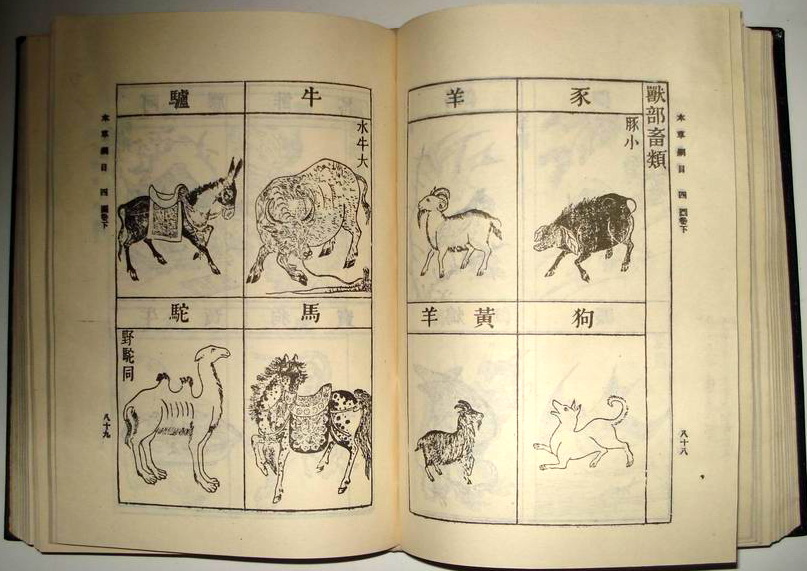 本草綱目 四 圖卷下
八十八
獸部畜類
豕
豚小
羊
狗
黃羊
牛
水牛大
驢
馬
駝
野駝同
本草綱目 四 圖卷下
八十九